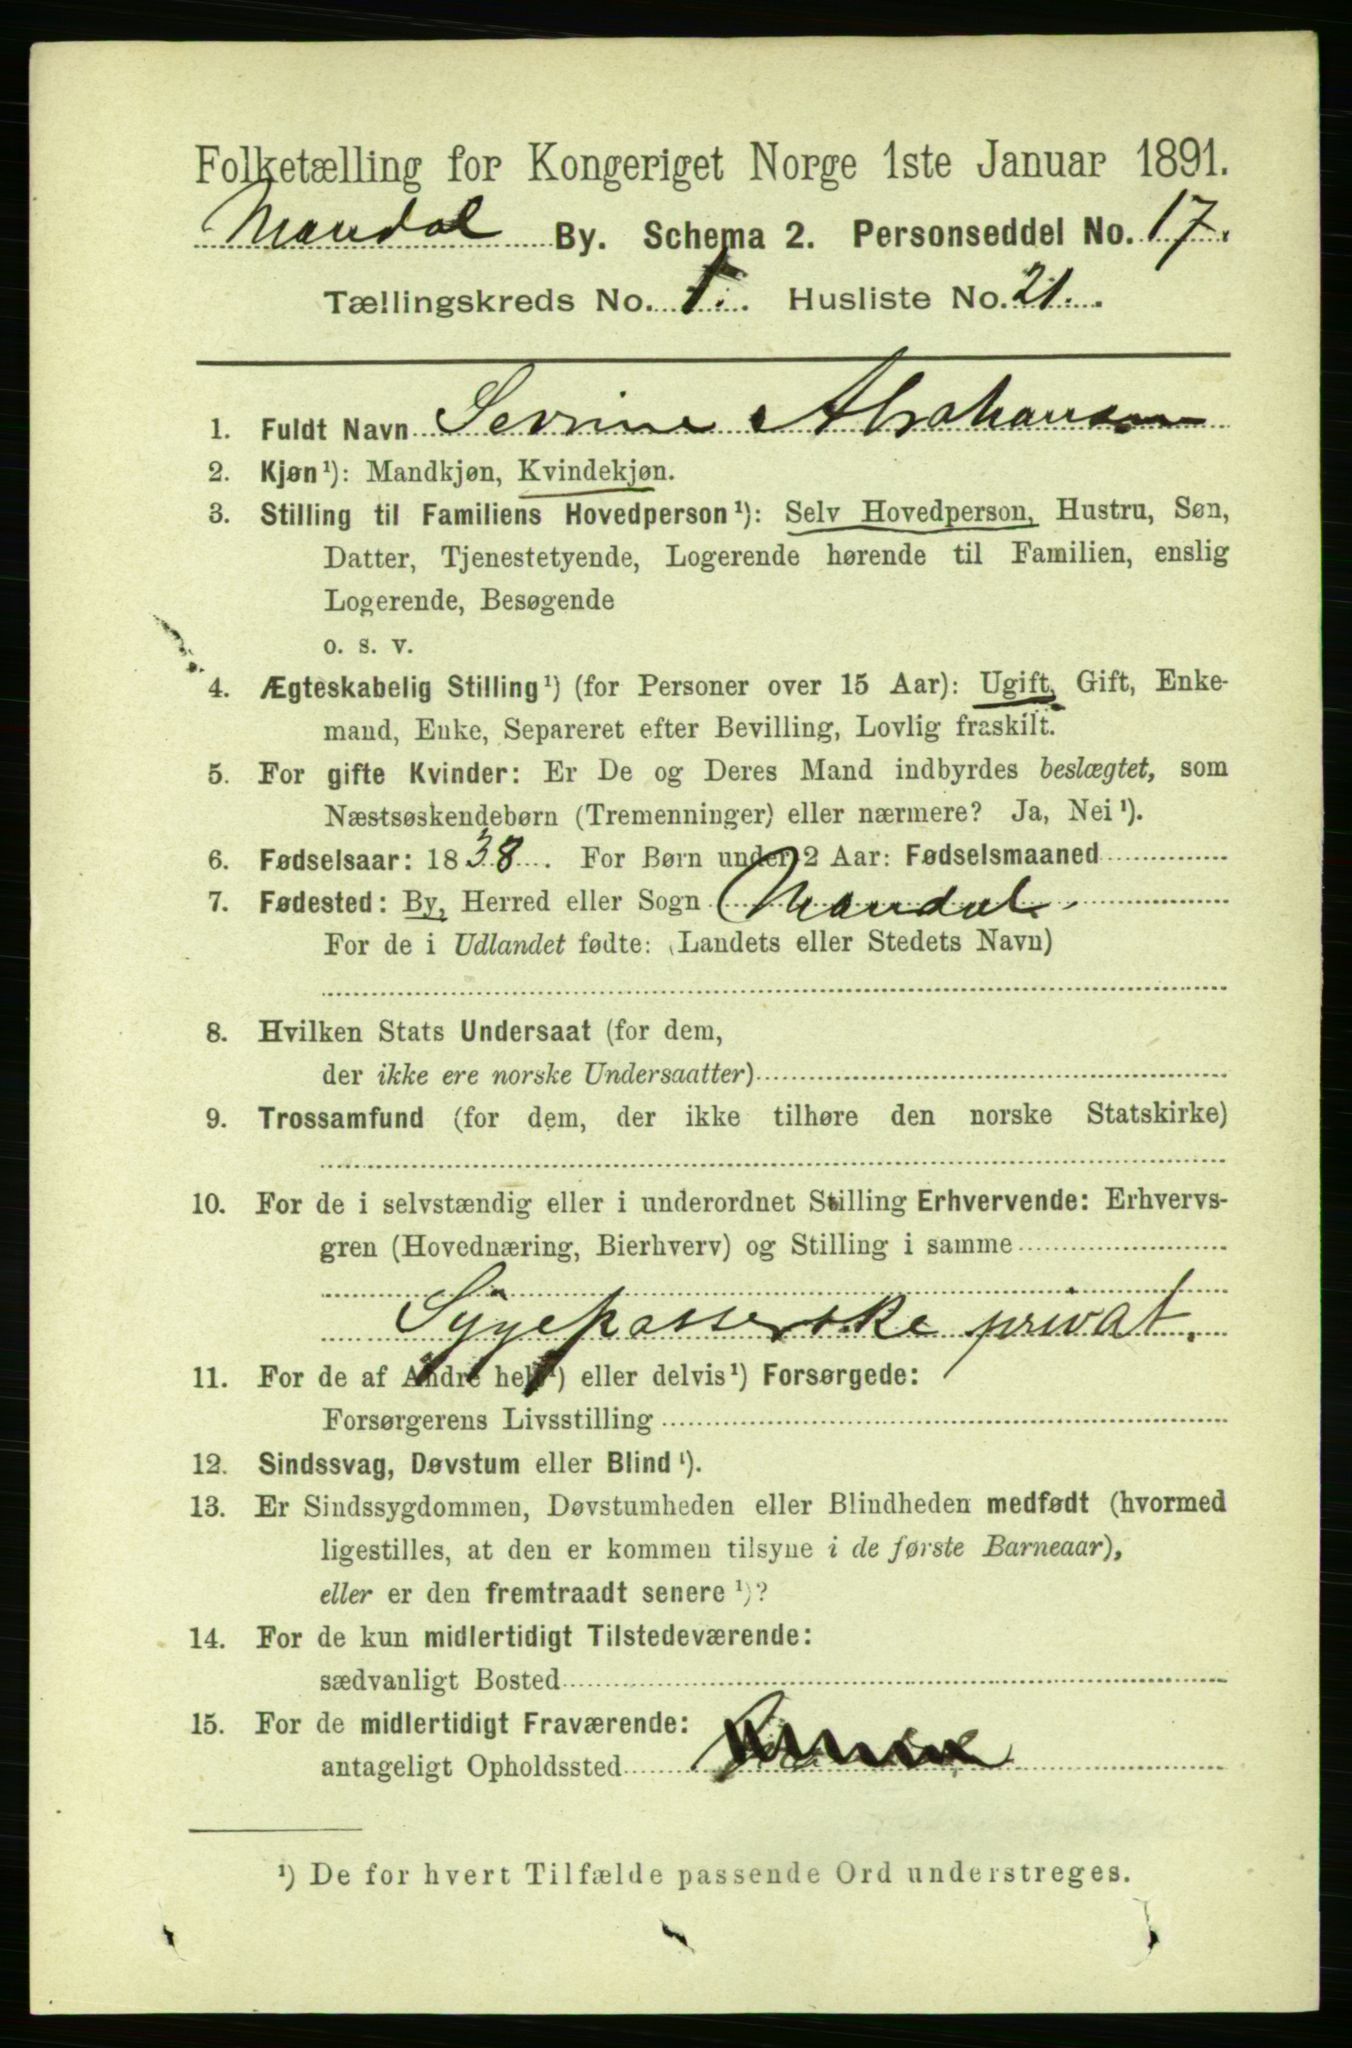 Folketælling for Kongeriget Norge 1ste Januar 1891.
Mandal By. Schema 2. Personseddel No. 17.
Tællingskreds No. 1. Husliste No. 21.
1. Fuldt Navn Serine Abrahamsen
2. Kjøn¹): Mandkjøn, Kvindekjøn.
3. Stilling til Familiens Hovedperson¹): Selv Hovedperson, Hustru, Søn,
Datter, Tjenestetyende, Logerende hørende til Familien, enslig
Logerende, Besøgende
o. s. v.
4. Ægteskabelig Stilling¹) (for Personer over 15 Aar): Ugift, Gift, Enke-
mand, Enke, Separeret efter Bevilling, Lovlig fraskilt.
5. For gifte Kvinder: Er De og Deres Mand indbyrdes beslægtet, som
Næstsøskendebørn (Tremenninger) eller nærmere? Ja, Nei¹).
6. Fødselsaar: 1838. For Børn under 2 Aar: Fødselsmaaned
7. Fødested: By, Herred eller Sogn Mandal.
For de i Udlandet fødte: (Landets eller Stedets Navn)
8. Hvilken Stats Undersaat (for dem,
der ikke ere norske Undersaatter)
9. Trossamfund (for dem, der ikke tilhøre den norske Statskirke)
10. For de i selvstændig eller i underordnet Stilling Erhvervende: Erhvervs-
gren (Hovednæring, Bierhverv) og Stilling i samme
Sygepasserske privat.
11. For de af Andre helt¹) eller delvis¹) Forsørgede:
Forsørgerens Livsstilling
12. Sindssvag, Døvstum eller Blind¹).
13. Er Sindssygdommen, Døvstumheden eller Blindheden medfødt (hvormed
ligestilles, at den er kommen tilsyne i de første Barneaar),
eller er den fremtraadt senere¹)?
14. For de kun midlertidigt Tilstedeværende:
sædvanligt Bosted
15. For de midlertidigt Fraværende:
antageligt Opholdssted
¹) De for hvert Tilfælde passende Ord understreges.